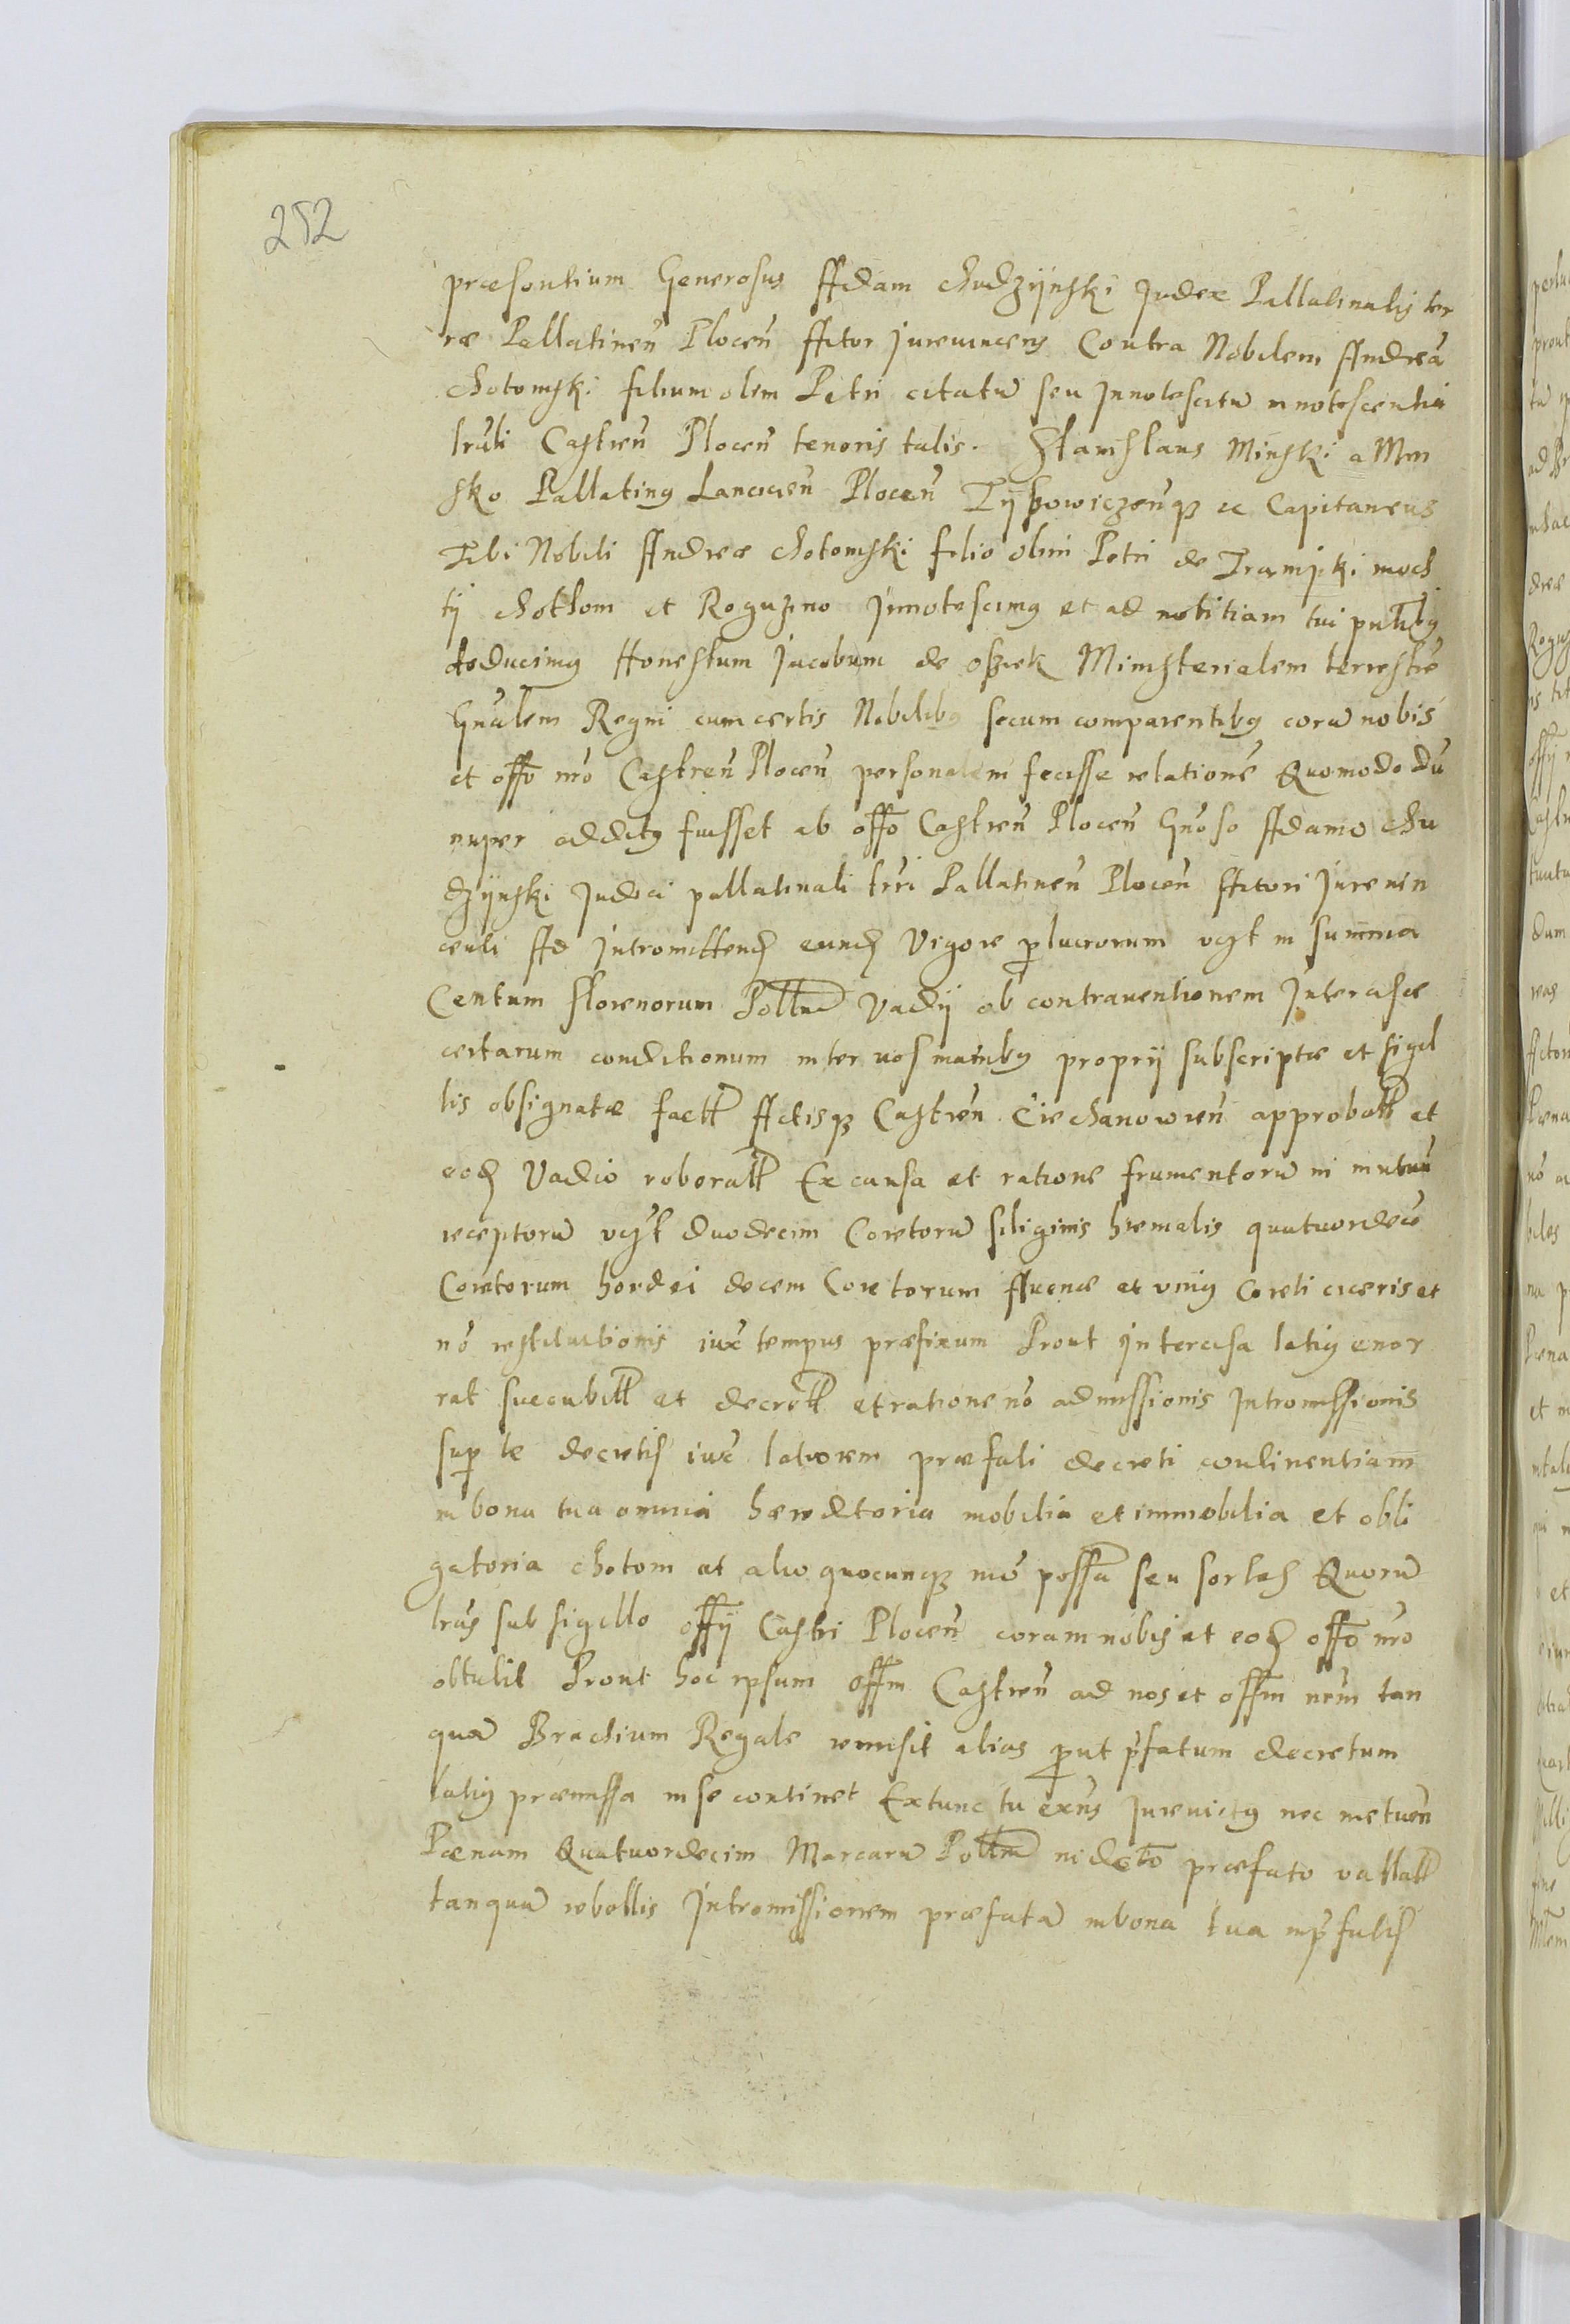 252
præsentium Generosus Adam Chudzÿnski Judex Pallatinalis ter
ræ Pallatineñ Ploceñ Actor Jurevincens Contra Nobilem Andreā
Chotomski filium olim Petri citatū seu Innotescitū innotescentia
lrāli Castreñ Ploceñ tenoris talis. Stanislaus Minski a Min
sko Pallatinꝰ Lancicieñ Plocen̄ Tÿ Capitaneus
Tibi Nobili Andreæ Chotomski filio olim Petri de Trampki
tÿ Chothom et Roguzino Innotescimꝰ et ad notitiam tui pntibꝰ
deducimꝰ Honestum Jacobum de Osiek Ministerialem terrestrē
Gñalem Regni cum certis Nobilibꝰ secum comparentibꝰ corā nobis
et offo nr̄o Castreñ Plocen̄ personalem fecisse relationē Quomodo dū
nuper additꝰ fuisset ab offo Castreñ Plocen̄ Gn̄oso Adamo Chu
dzÿnski Judici pallatinali trri Pallatineñ Plocen̄ Actori Jurevin
centi Ad Intromittend eund Vigore ꝑlucrorum vꝫt in summa
Centum florenorum Polln̄ Vadÿ ob contraventionem Intercisæ
certarum conditionum inter vos manibꝰ proprÿ subscriptæ et sigil
lis obsignatæ factt Actisqꝫ Castreñ Ciechanowień approbatt et
eod Vadio roboratt Ex causa et ratione frumentorū in mutuū
receptorū vꝫt duodecim Coretorū siliginis hiemalis quatuordecē
Coretorum hordei decem Coretorum Avenæ et unius Coreti ciceris et
nō restitutionis iux̄ tempus præfixum Prout Intercisa latiꝰ enar
rat succubitt et decrett et ratione nō admissionis Intromissionis
suꝑ te decretis iux̄ latiorem præfati decreti continentiam
in bona tua omnia hæreditoria mobilia et immobilia et obli
gatoria Chotom et alio quocunqꝫ mō possā seu sortes Quorū
lrās sub sigillo offÿ Castri Plocen̄ coram nobis et eod offo nr̄o
obtulit Prout hoc ipsum offm Castreñ ad nos et offm nrm tan
quā Brachium Regale remisit alias ꝓut p̄fatum decretum
latiꝰ præmissa in se continet Extunc tu ex̄ns Jurevictꝰ nec metueñ
Pænam Quatuordecim Marcarū Polln̄ in dcto præfato vallatt
tanquā rebellis Intromissionem præfatā in bona tua in p̄fatis